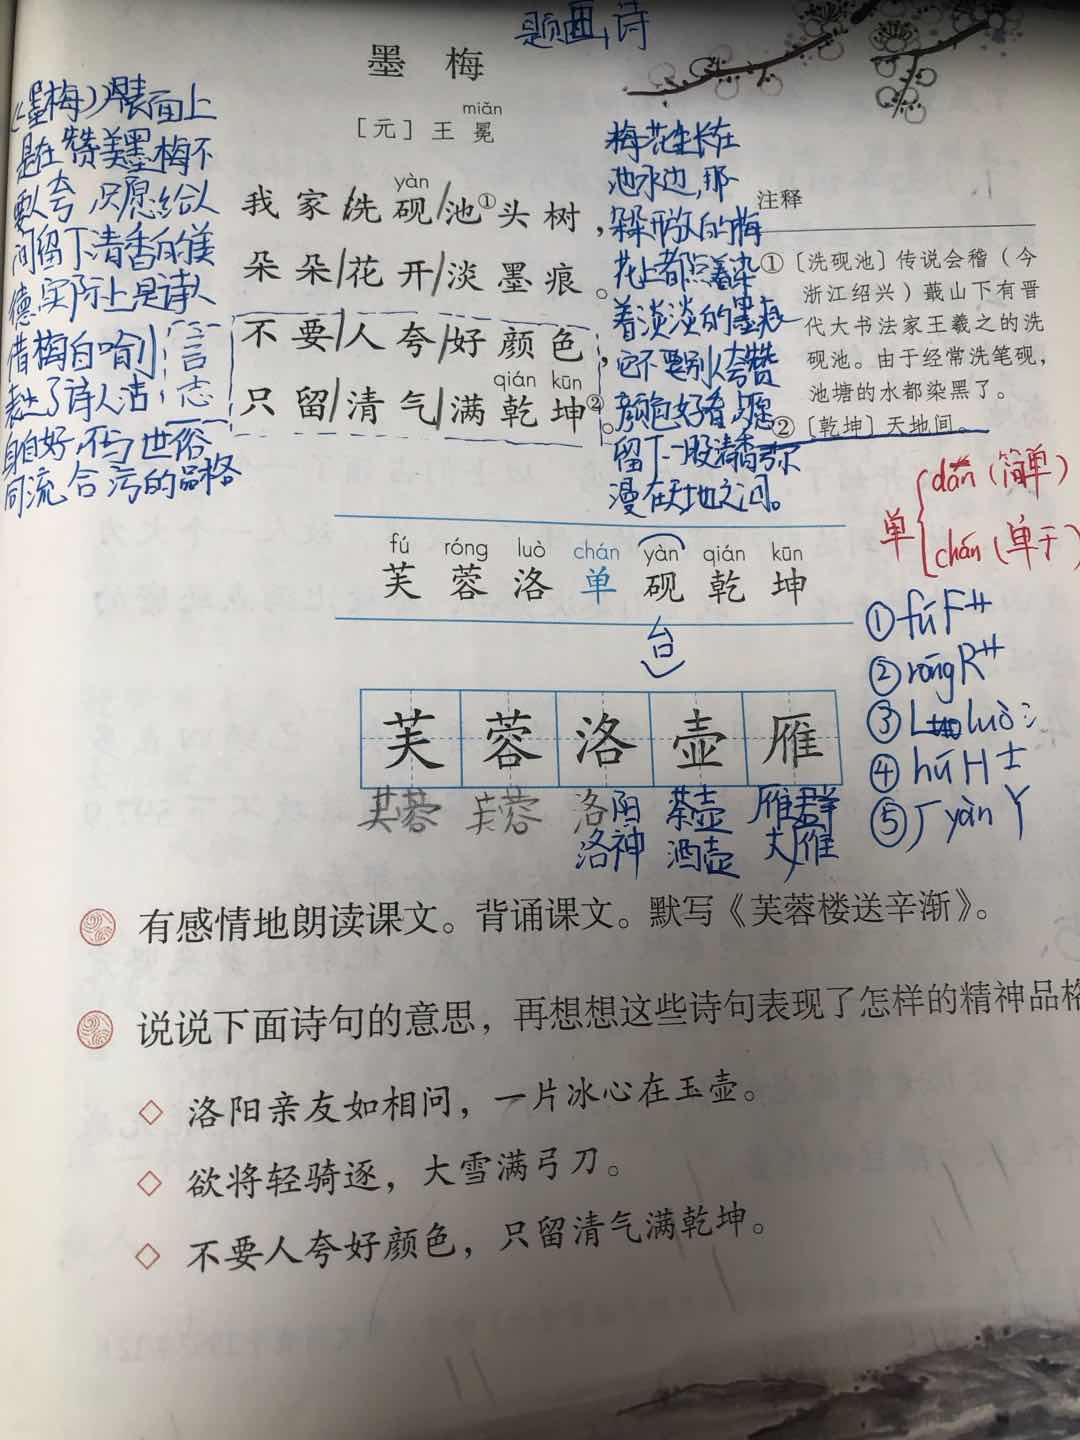 题画诗
墨梅
miǎn
[元]王冕
《墨梅》表面上
是在赞美墨梅不
要人夸 只愿给人
间留下清香的美
德实际上是诗人
借梅自喻
表达了诗人洁
身自好,不与世俗
同流合污的品格
言
志
yàn
我家/洗砚/池①头树,
朵朵/花开/淡墨痕。
不要/人夸/好颜色,
qián kūn
只留/清气/满乾坤②。
梅花生长在
池水边,那
朵朵开放的梅
花上都点着染
着淡淡的墨痕
它不要别人夸赞
颜色好看只愿
留下一股清香弥
漫在天地之间。
注释
①[洗砚池]传说会稽(今
浙江绍兴)蕺山下有晋
代大书法家王羲之的洗
砚池。由于经常洗笔砚,
池塘的水都染黑了。
②[乾坤]天地间。
单
dān(简单)
chán(单于)
fú róng luò chán yàn qián kūn
芙 蓉 洛 单 砚 乾 坤
台
①fú F艹
②róng R艹
③L luò 氵
④hú H士
⑤厂yàn Y
芙 蓉 洛 壶 雁
芙蓉 芙蓉 洛阳 茶壶 雁群
洛神 酒壶 大雁
有感情地朗读课文。背诵课文。默写《芙蓉楼送辛渐》。
说说下面诗句的意思,再想想这些诗句表现了怎样的精神品格
◇ 洛阳亲友如相问,一片冰心在玉壶。
◇ 欲将轻骑逐,大雪满弓刀。
◇ 不要人夸好颜色,只留清气满乾坤。